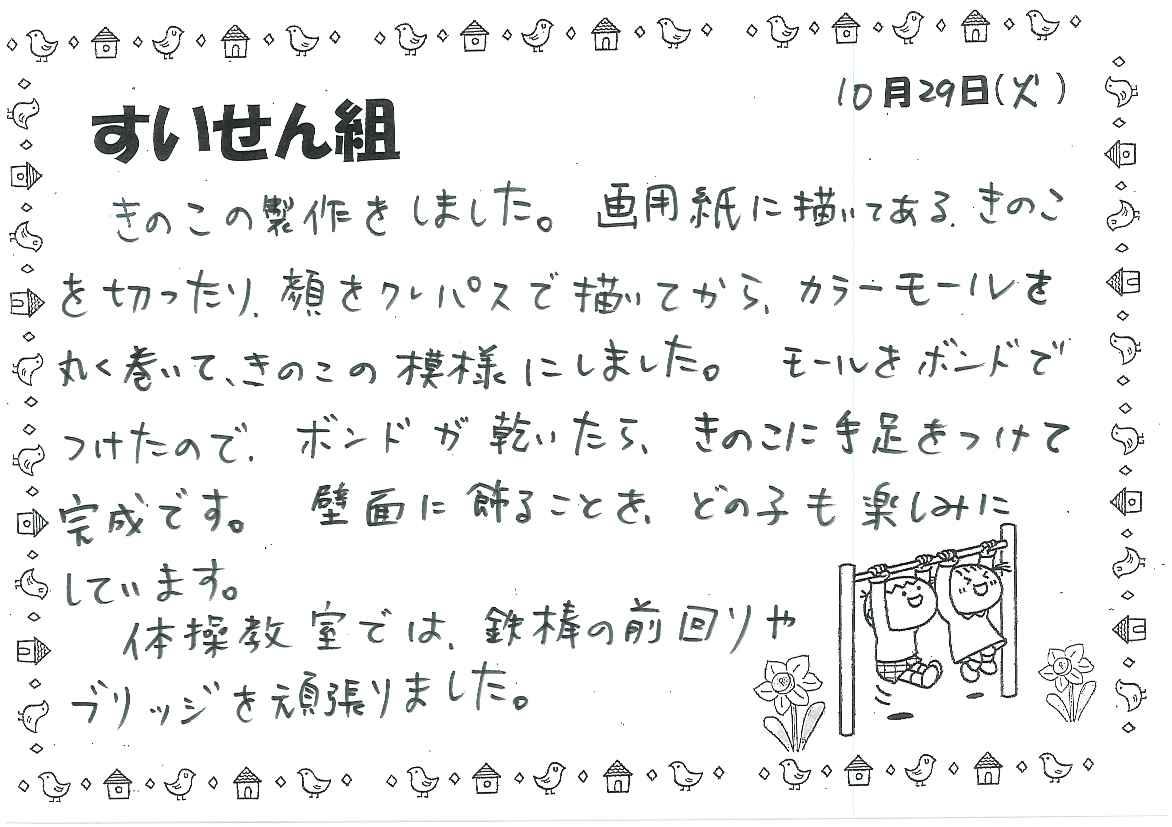 10月29日(火)
すいせん組
きのこの製作をしました。 画用紙に描いてある、きのこ
を切ったり、顔をクレパスで描いてから、カラーモールを
丸く巻いて、きのこの模様にしました。 モールをボンドで
つけたので、ボンドが乾いたら、きのこに手足をつけて
完成です。 壁面に飾ることを、どの子も楽しみに
しています。
体操教室では、鉄棒の前回りや
ブリッジを頑張りました。